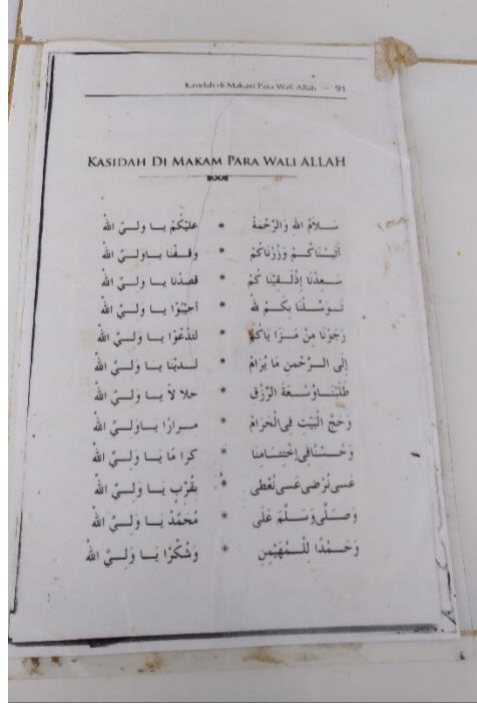 Kasidah di Makam Para Wali Allah — 91
KASIDAH DI MAKAM PARA WALI ALLAH
سَلاَمُ اللهِ وَالرَّحْمَةْ * عَلَيْكُمْ يَـا وَلِـيَّ اللهْ
أَتَيْـنَاكُـمْ وَزُرْنَاكُمْ * وَقَـفْـنَا يَـاوَلِـيَّ اللهْ
سَـعِدْنَا إِذْلَـقِيْنَا كُمْ * قَصَدْنَا يَـا وَلِـيَّ اللهْ
تَـوَسَّـلْنَا بِـكُـمْ لله * أَجِيْبُوْا يَـا وَلِـيَّ اللهْ
رَجَوْنَا مِنْ مَـزَا يَاكُمْ * لِتَدْعُوْا يَـا وَلِـيَّ اللهْ
إِلَى الـرَّحْمنِ مَا يُرَامْ * لَـدَيْنَا يَـا وَلِـيَّ اللهْ
طَلَبْنَـاوُسْـعَةَ الرِّزْقِ * حَلاَ لاً يَـا وَلِـيَّ اللهْ
وَحَجَّ الْبَيْتِ فِى الْحَرَامْ * مِـرَارًا يَـاوَلِـيَّ اللهْ
وَحُـسْنًافِى إخْتِتَـامِنَا * كِرَا مًا يَـا وَلِـيَّ اللهْ
عَسى نُرْضى عَسى نُعْطى * بِقُرْبٍ يَـا وَلِـيَّ اللهْ
وَصَلَّى وَسَلَّمَ عَلَى * مُحَمَّدْ يَـا وَلِـيَّ اللهْ
وَحَـمْدًا لِلْـمُهَيْمِنِ * وَشُكْرًا يَـا وَلِـيَّ اللهْ